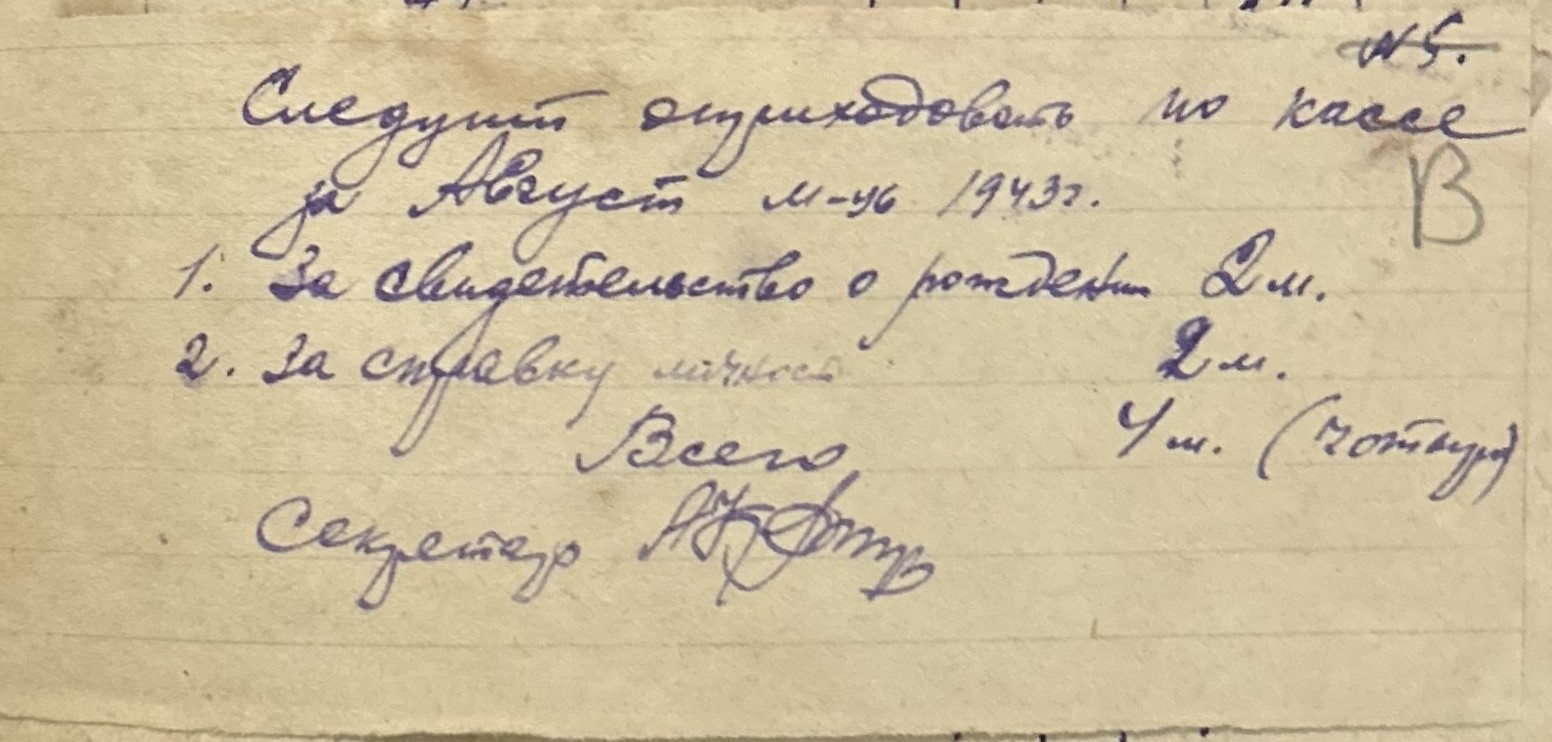 N 5.
Следуит оприходовать по кассе
за Август м-ць 1943г.
В
1. За свидетельство о рождении 2 м.
2. За справку личност 2 м.
Всего 4 м. (чотыри)
Секретарь